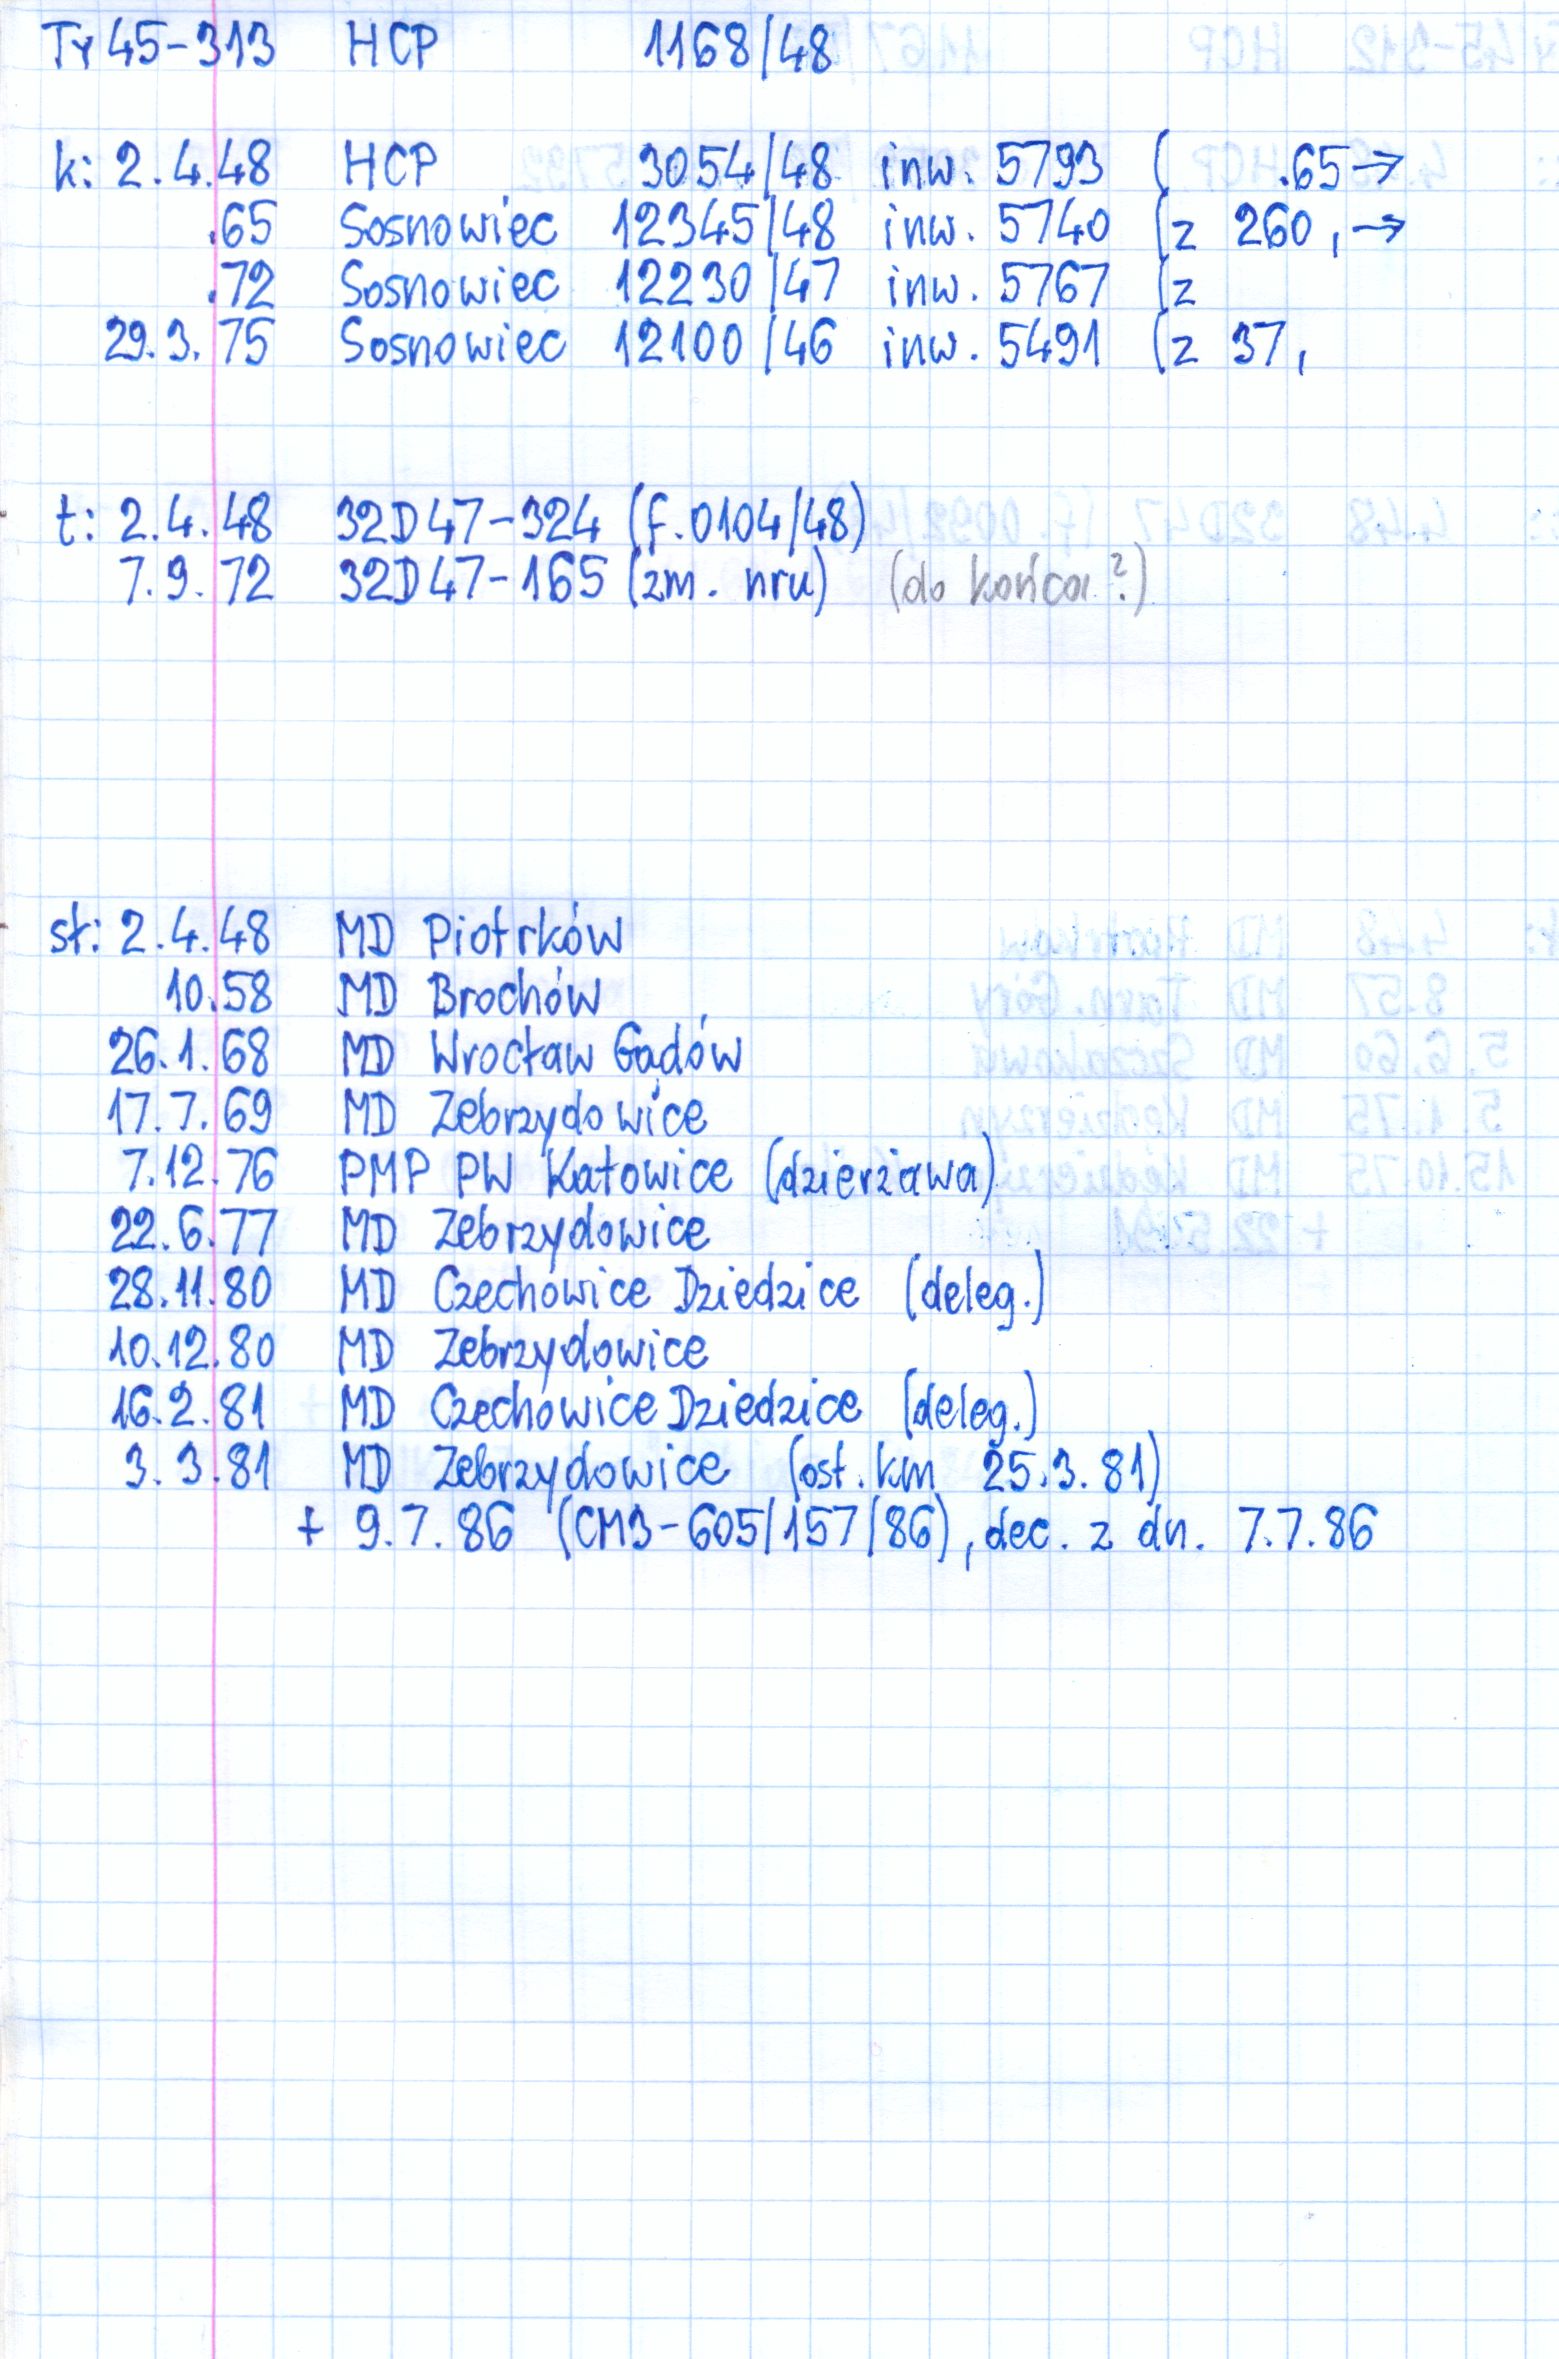 Ty45-313 HCP 1168/48
k: 2.4.48 HCP 3054/48 inw. 5793 ( .65→
.65 Sosnowiec 12345/48 inw. 5740 (z 260, →
.72 Sosnowiec 12230/47 inw. 5767 (z
29.3.75 Sosnowiec 12100/46 inw. 5491 (z 37,
t: 2.4.48 32D47-324 (f.0104/48)
7.9.72 32D47-165 (zm. nru) (do końca?)
st: 2.4.48 MD Piotrków
10.58 MD Brochów
26.1.68 MD Wrocław Gądów
17.7.69 MD Zebrzydowice
7.12.76 PMP PW Katowice (dzierżawa)
22.6.77 MD Zebrzydowice
28.11.80 MD Czechowice Dziedzice (deleg.)
10.12.80 MD Zebrzydowice
16.2.81 MD Czechowice Dziedzice (deleg.)
3.3.81 MD Zebrzydowice (ost. km 25.3.81)
+ 9.7.86 (CM3-605/157/86), dec. z dn. 7.7.86